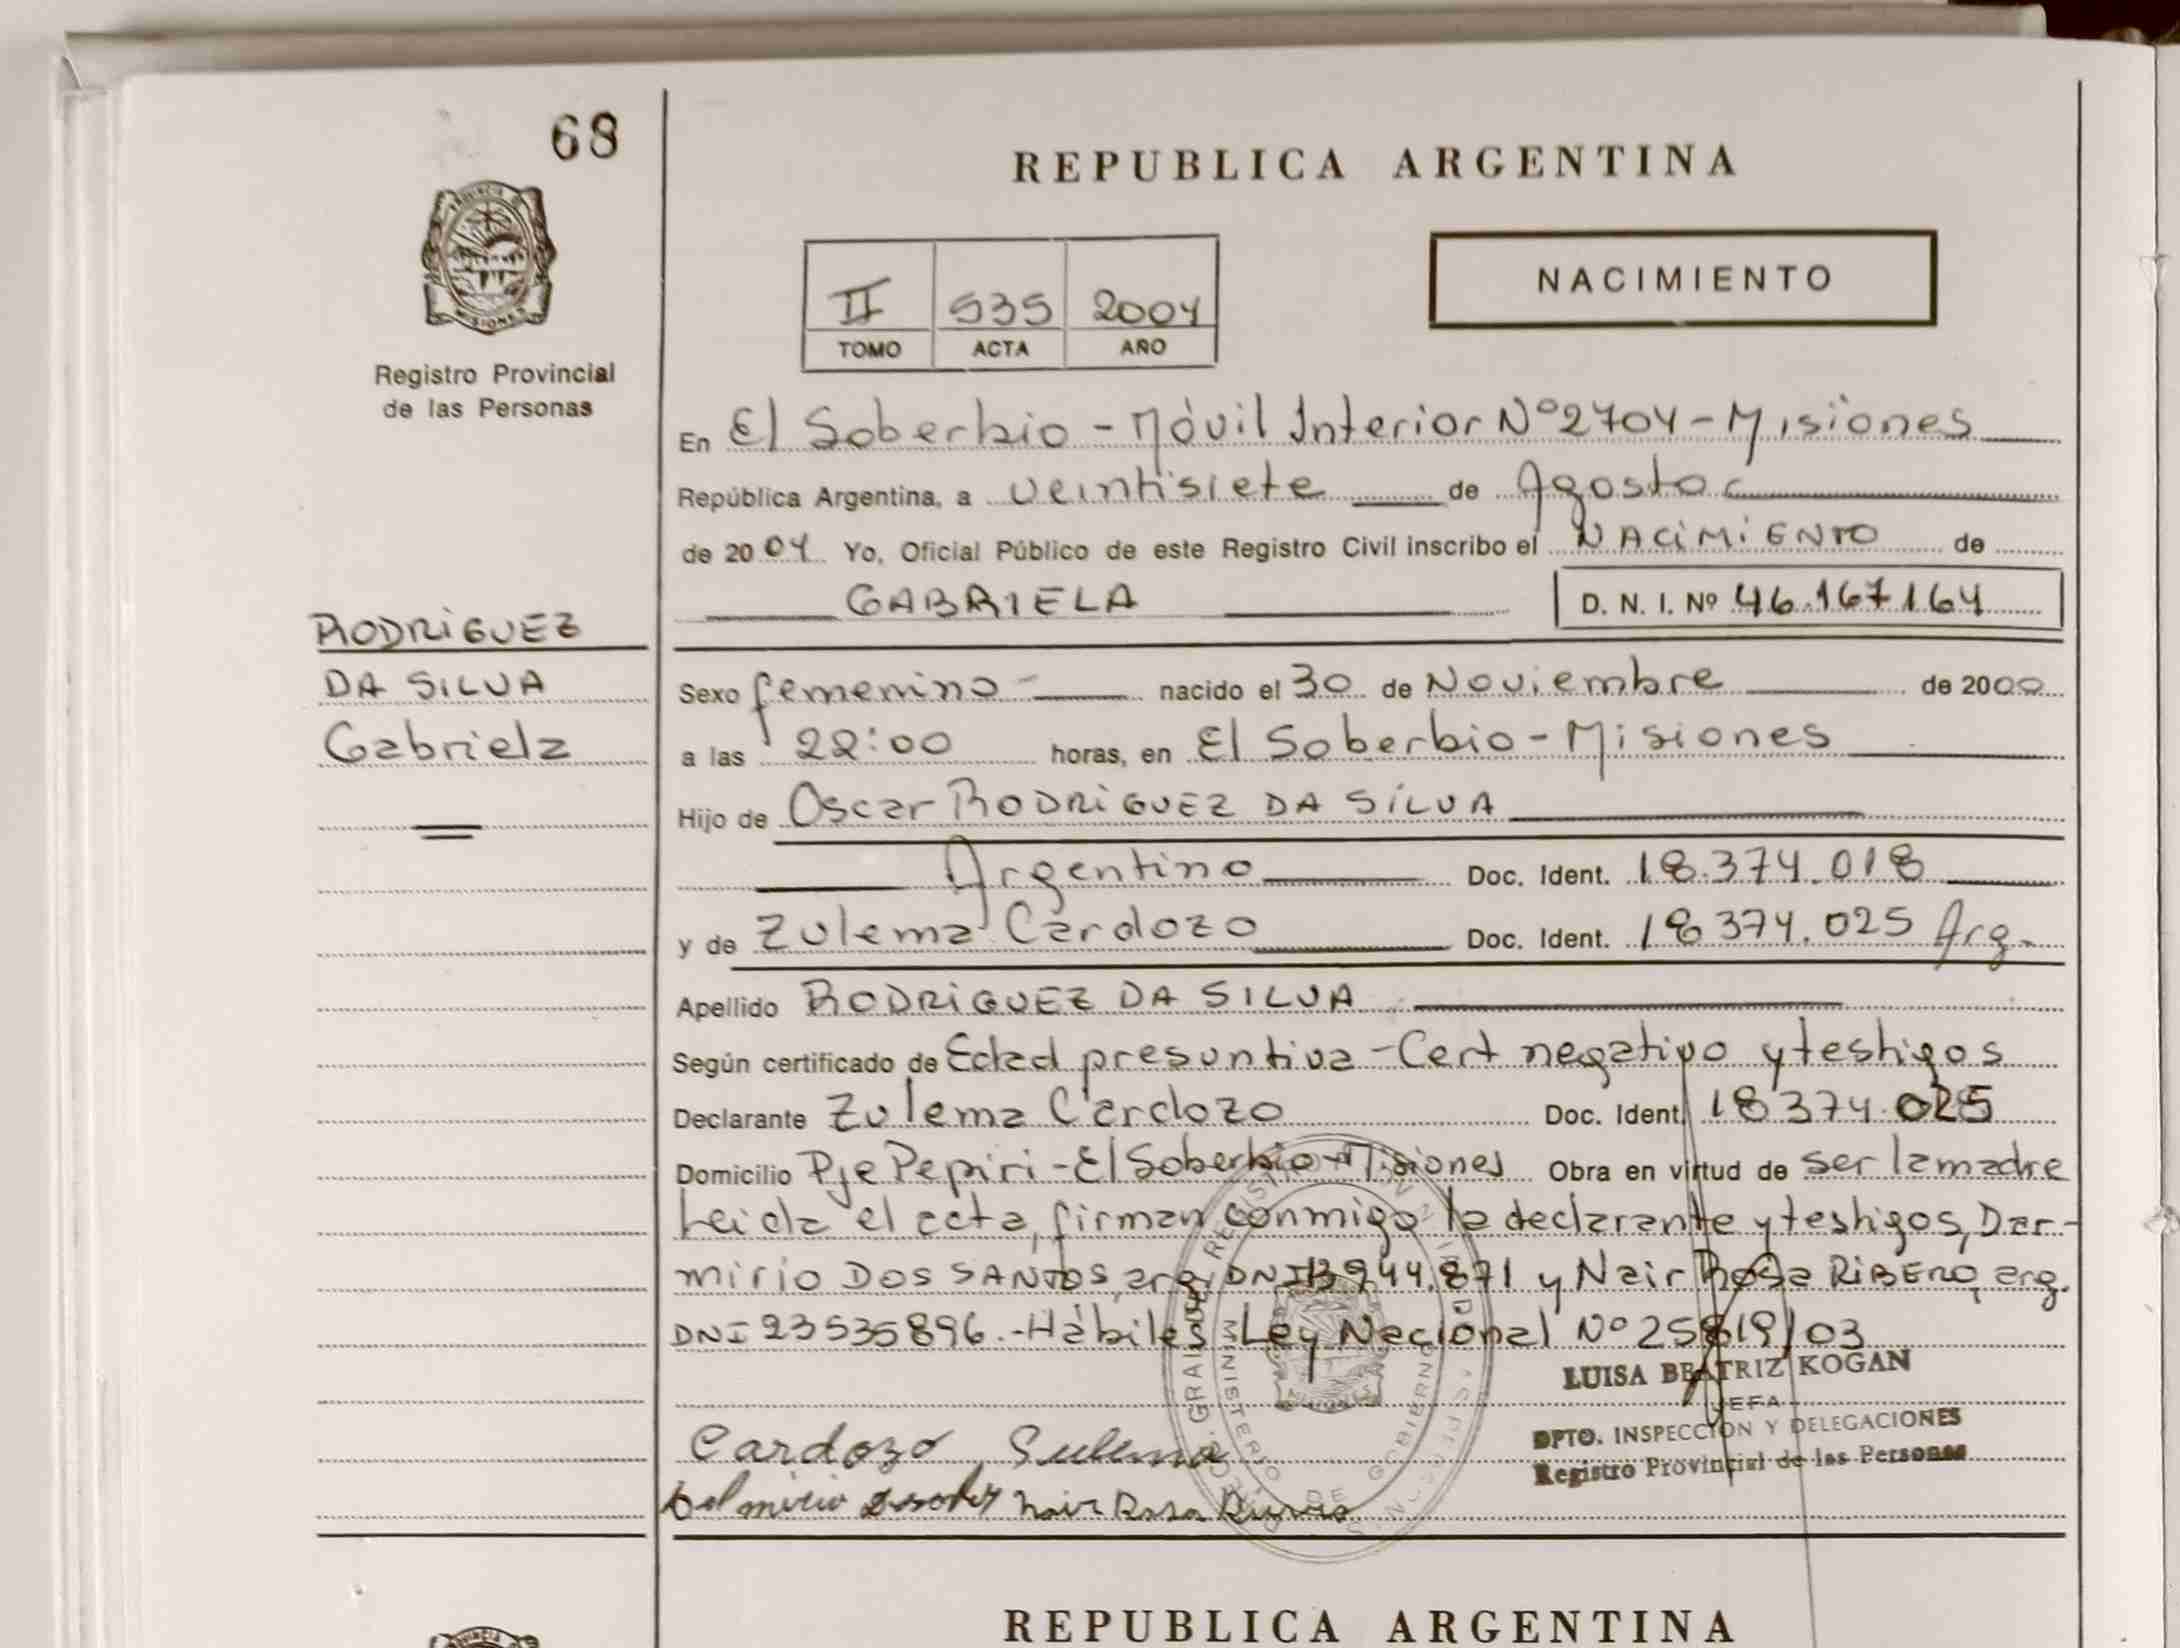 68
REPUBLICA ARGENTINA
PROVINCIA
MISIONES
Registro Provincial
de las Personas
II 535 2004
TOMO ACTA AÑO
NACIMIENTO
En El Soberbio - Móvil Interior Nº 2704 - Misiones
República Argentina, a veintisiete de Agosto
de 2004 Yo, Oficial Público de este Registro Civil inscribo el NACIMIENTO de
GABRIELA D. N. I. Nº 46.167164
RODRIGUEZ
DA SILVA
Gabriela
Sexo femenino nacido el 30 de Noviembre de 2000
a las 22:00 horas, en El Soberbio - Misiones
Hijo de Oscar RODRIGUEZ DA SILVA
Argentino Doc. Ident. 18.374.018
y de Zulema Cardozo Doc. Ident. 18 374.025 Arg.
Apellido RODRIGUEZ DA SILVA
Según certificado de Edad presuntiva - Cert negativo y testigos
Declarante Zulema Cardozo Doc. Ident. 18 374.025
Domicilio Pje Pepiri - El Soberbio - Misiones Obra en virtud de ser la madre
Leida el acta, firman conmigo la declarante y testigos, Der-
mirio DOS SANTOS, arg, DNI 13 944.871 y Nair Rosa RIBERO, arg.
DNI 23535896.- Hábiles - Ley Nacional Nº 25819/03
LUISA BEATRIZ KOGAN
JEFA
DPTO. INSPECCION Y DELEGACIONES
Registro Provincial de las Personas
Cardozo Sulema
Delmirio nair Rosa
MINISTERIO DE GOBIERNO
MISIONES
REPUBLICA ARGENTINA
PROVINCIA